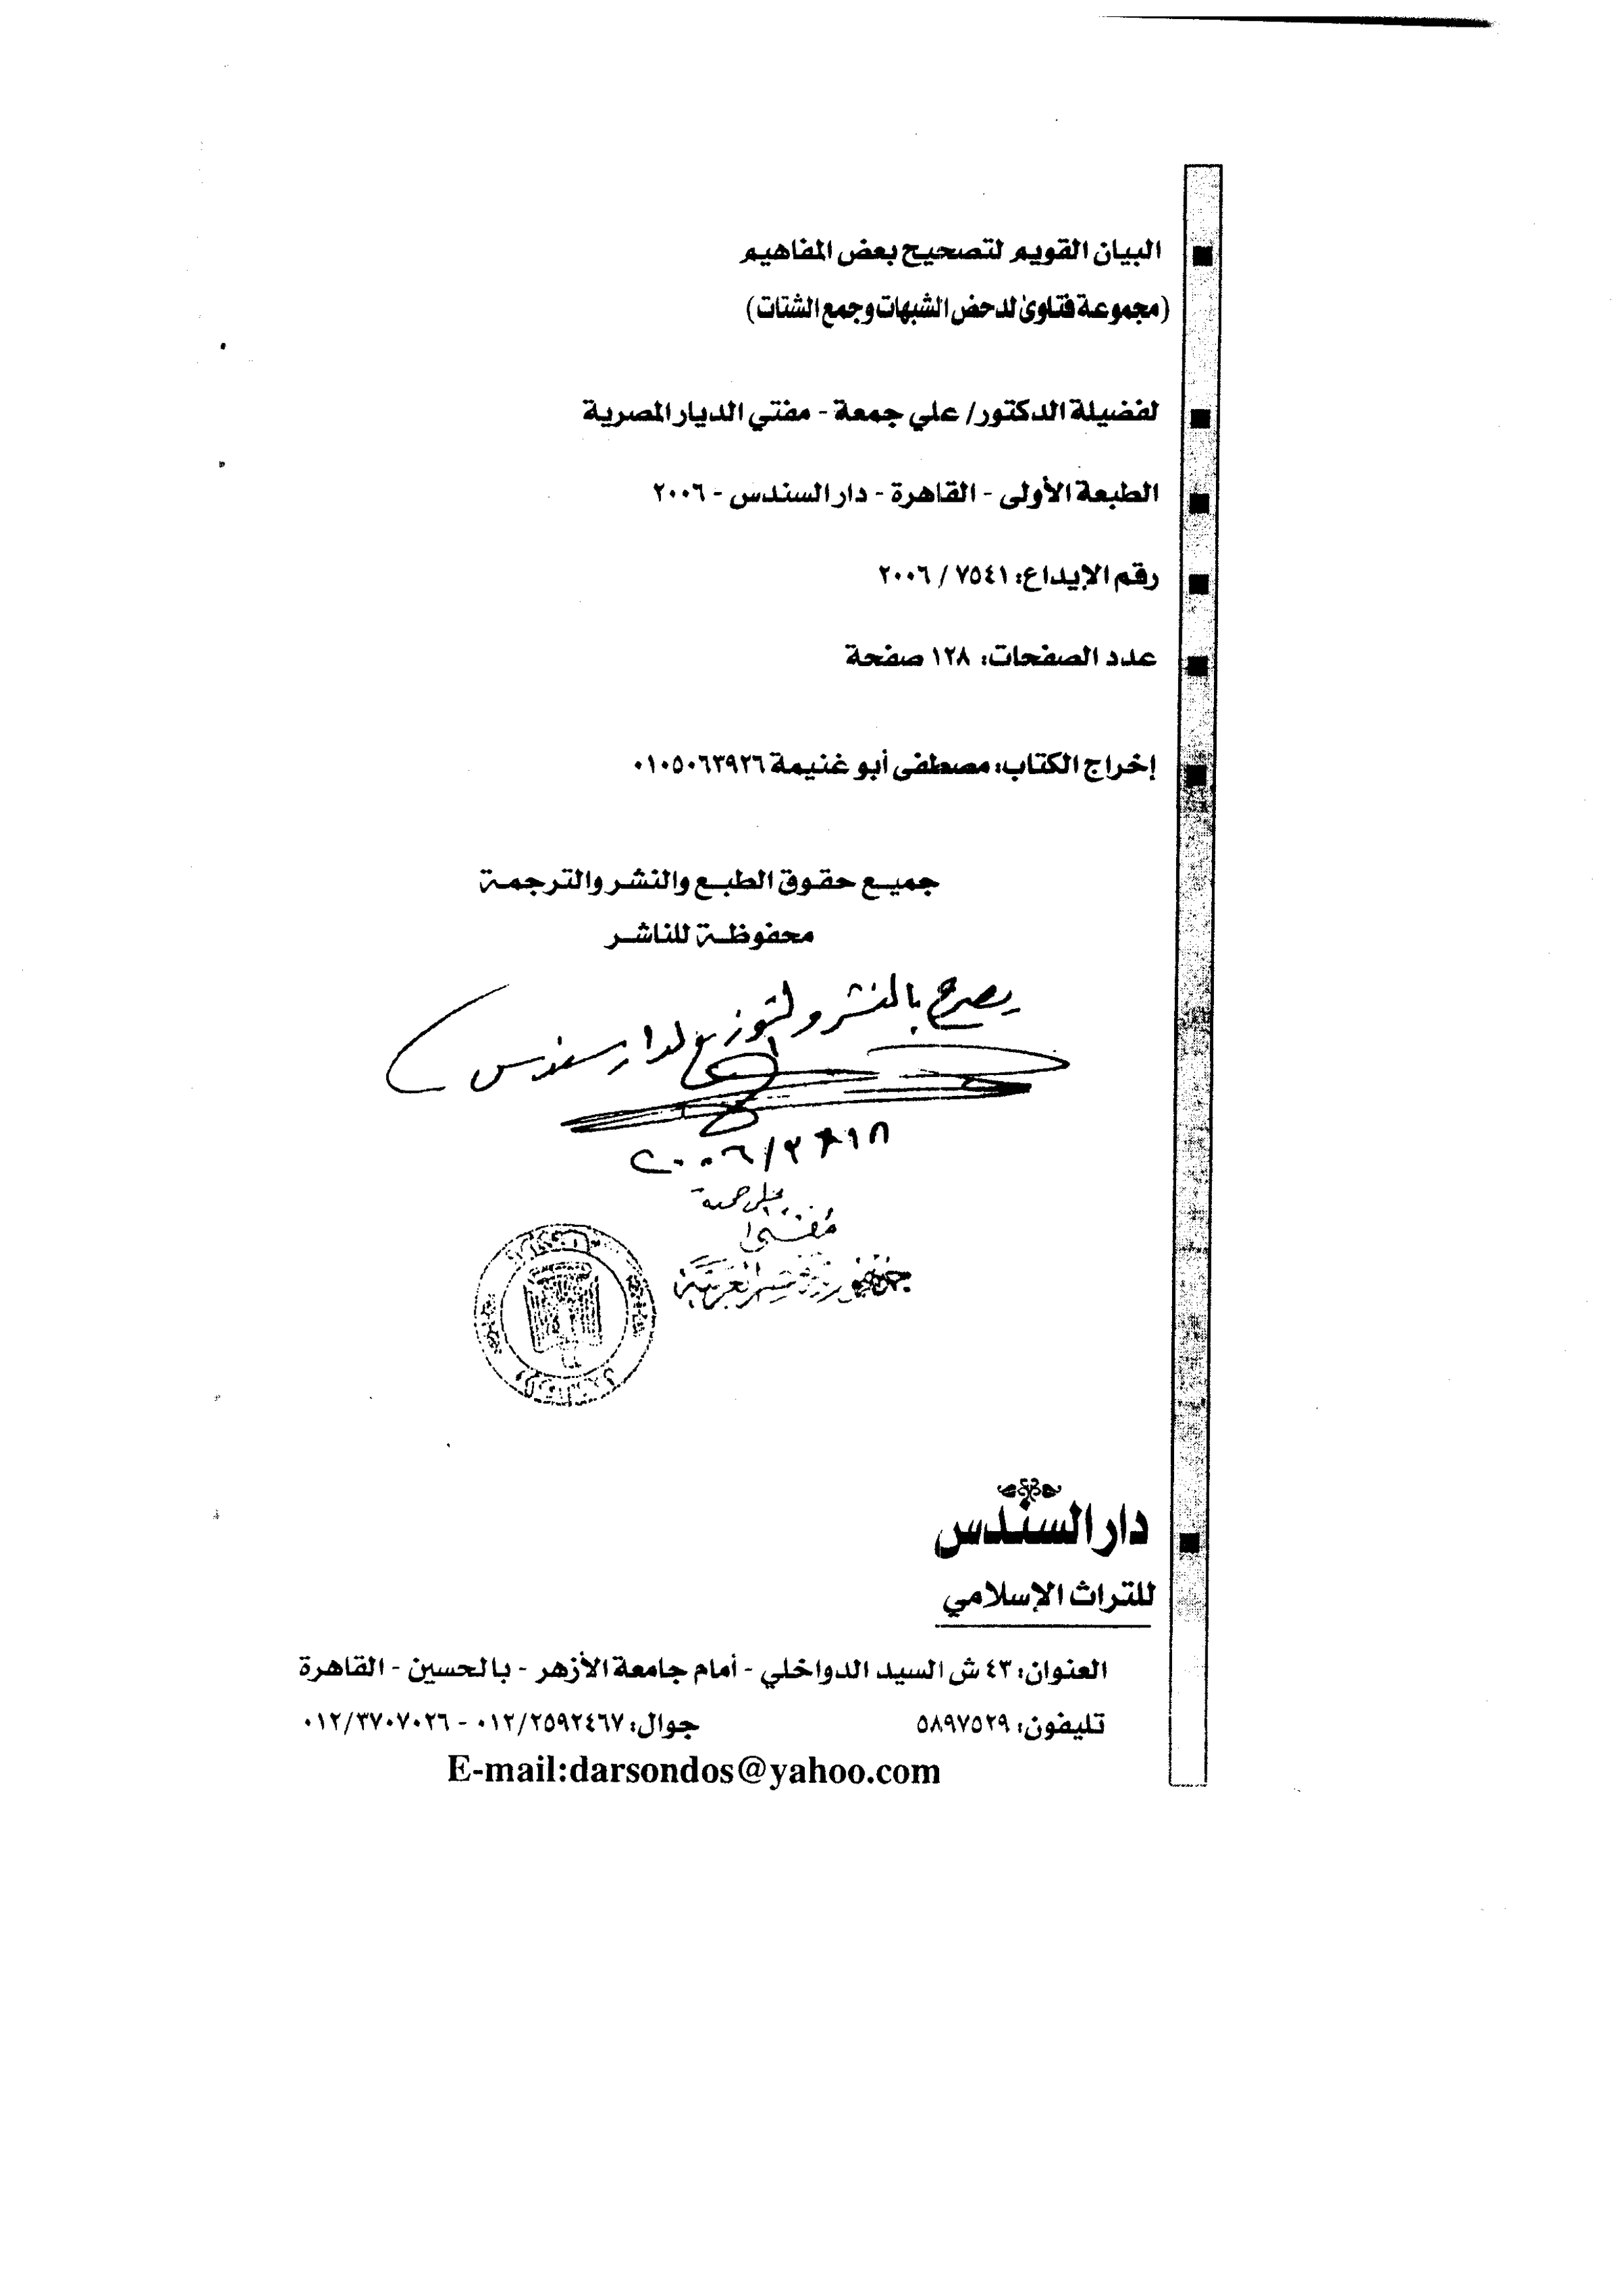 البيان القويم لتصحيح بعض المفاهيم
(مجموعة فتاوىٰ لدحض الشبهات وجمع الشتات)
لفضيلة الدكتور/ علي جمعة - مفتي الديار المصرية
الطبعة الأولى - القاهرة - دار السندس - ٢٠٠٦
رقم الإيداع: ٧٥٤١ / ٢٠٠٦
عدد الصفحات: ١٢٨ صفحة
إخراج الكتاب: مصطفى أبو غنيمة ٠١٠٥٠٦٣٩٢٦
جميع حقوق الطبع والنشر والترجمة
محفوظة للناشر
يصرح بالنشر والتوزيع لدار سندس
على جمعة
مفتى
جمهورية مصر العربية
دار السندس
للتراث الإسلامي
العنوان: ٤٣ ش السيد الدواخلي - أمام جامعة الأزهر - بالحسين - القاهرة
تليفون: ٥٨٩٧٥٢٩ جوال: ٠١٢/٢٥٩٢٤٦٧ - ٠١٢/٣٧٠٧٠٢٦
E-mail:darsondos@yahoo.com